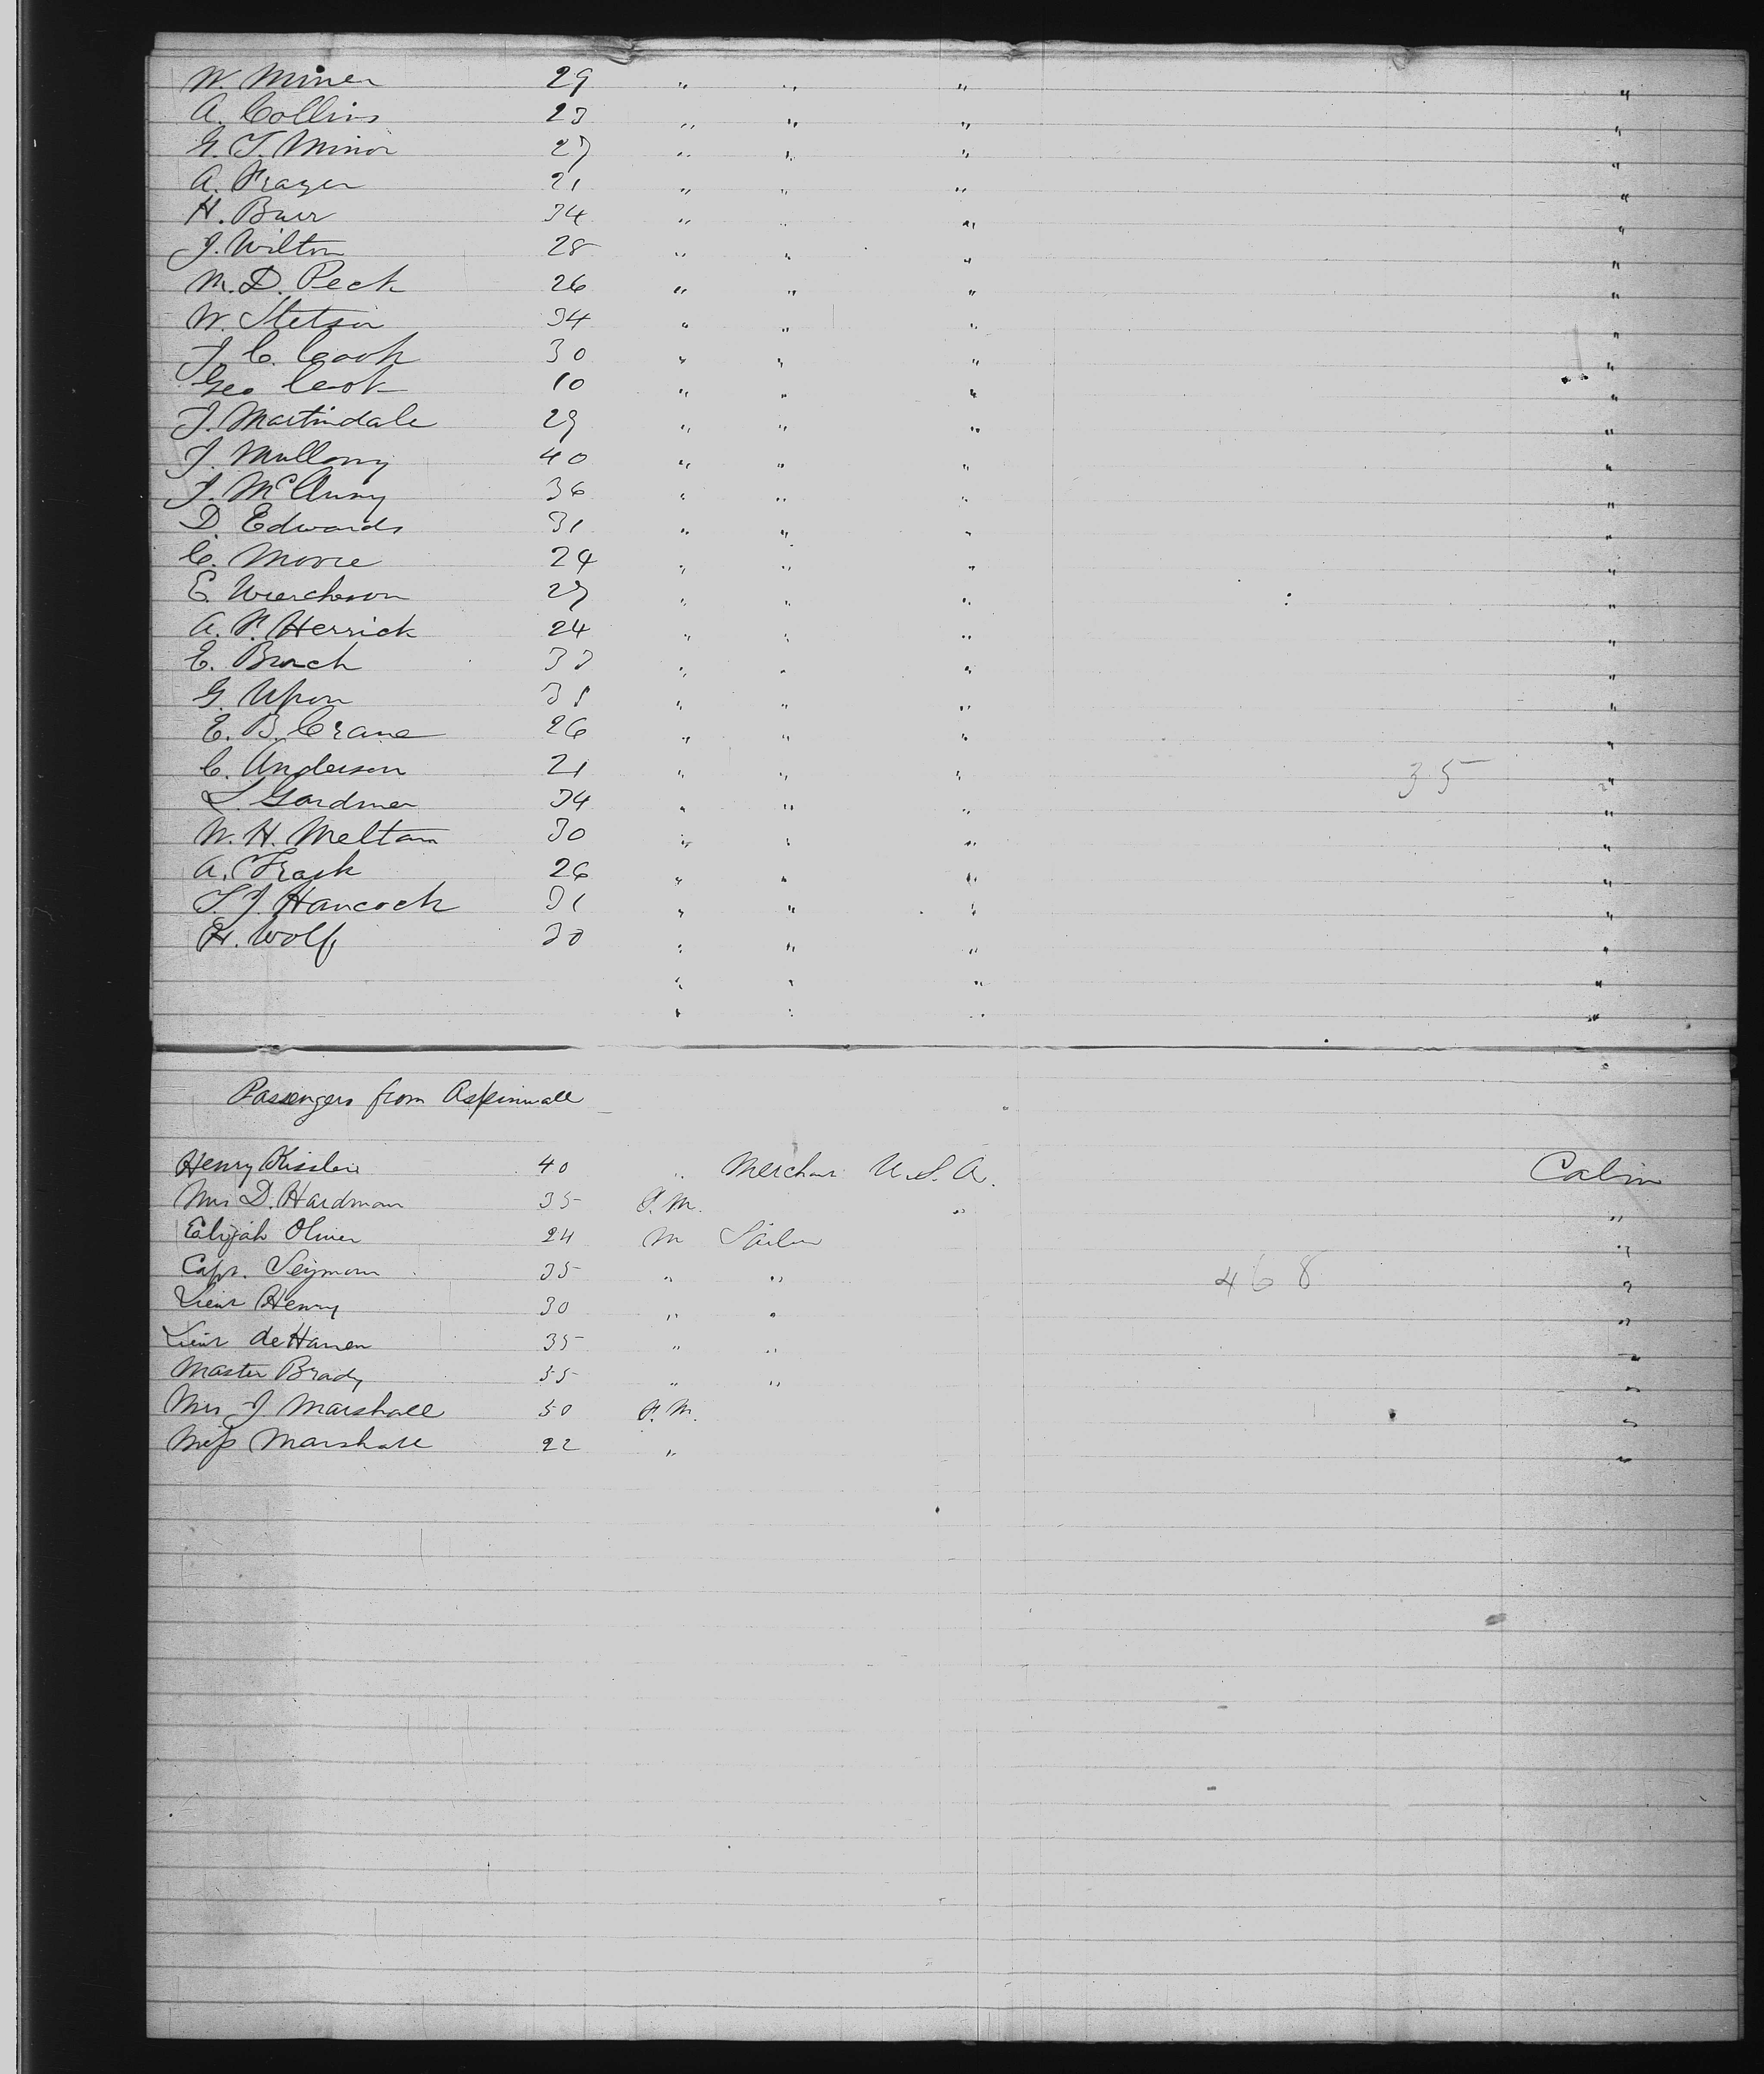 W. Miner 29 " " " "
A. Collins 23 " " " "
G. T. Minor 27 " " " "
A. Frazer 21 " " " "
H. Burr 34 " " " "
J. Wilton 28 " " " "
M. D. Peck 26 " " " "
W. Stetson 34 " " " "
J. C. Cook 30 " " " "
Geo Cook 10 " " " "
J. Martindale 29 " " " "
J. Mullony 40 " " " "
J. 36 " " " "
D. Edwards 31 " " " "
C. Moore 24 " " " "
E. 27 " " " "
A. F. Herrick 24 " " " "
E. 33 " " " "
G. Upon " " " "
E. B. Crane 26 " " " "
C. Anderson 21 " " " 35 "
L. Gardner 34 " " " "
W. H. Meltam 30 " " " "
A. Trask 26 " " " "
T. J. Hancock 31 " " " "
H. Wolf 30 " " " "
" " " "
" " " "
Passengers from Aspinwall
Henry 40 " Merchant U.S.A. Cabin
Mrs D. Hardman 35 F.M. " "
Elijah Oliver 24 M Sailor "
Capt. Seymour 35 " " 468 "
Lieut Henry 30 " " "
Lieut deHaven 35 " " "
Master Brady 35 " " "
Mrs J Marshall 50 F.M. "
Miss Marshall 22 " "